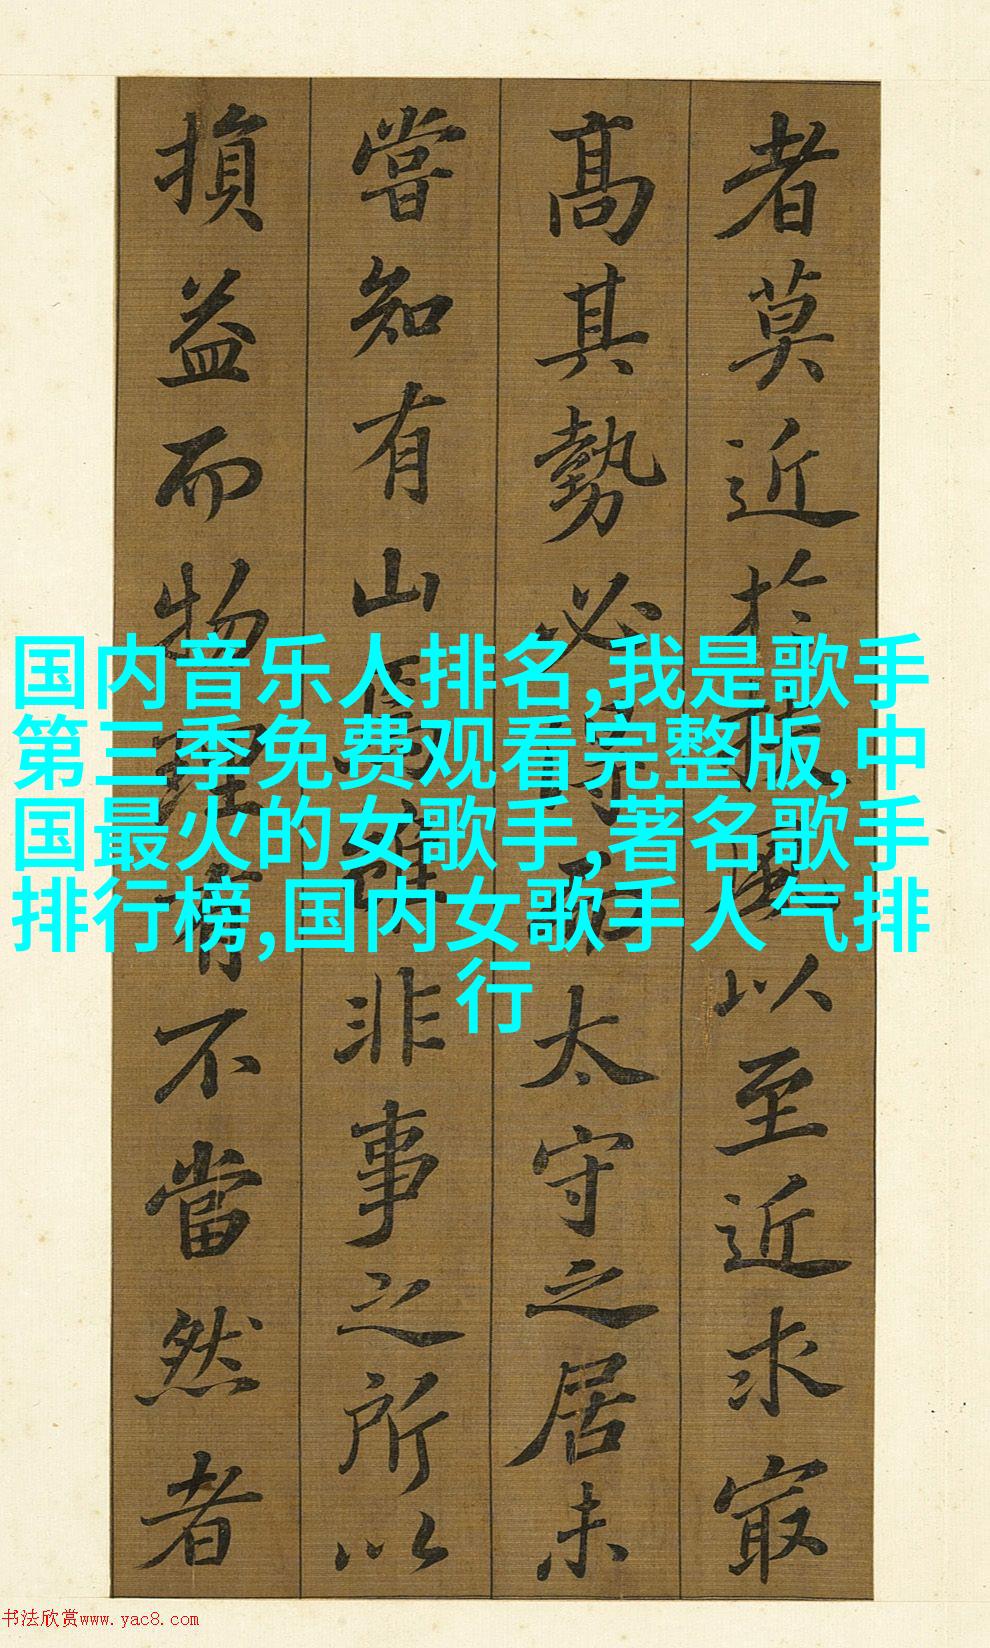 者莫近扵扶風以至近求㝡
髙其勢必得而太守之居未
嘗知有山焉雖非事之所以
損益而物理有不當然者
国内音乐人排名,我是歌手
第三季免费观看完整版,中
国最火的女歌手,著名歌手
排行榜,国内女歌手人气排
行
书法欣赏www.yac8.com